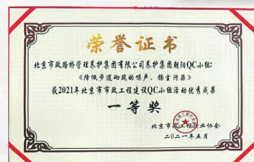 荣誉证书
北京市政路桥管理养护集团有限公司养护集团朝阳QC小组:
《降低步道砌筑的噪声、扬尘污染》
获2021年北京市市政工程建设QC小组活动优秀成果
一等奖
北京市政工程行业协会
二〇二一年五月